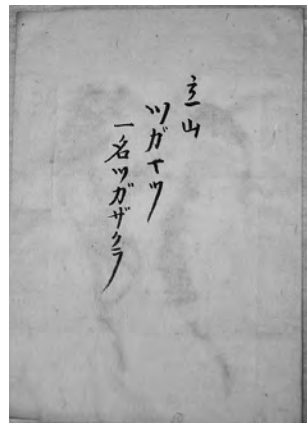 立山
ツガマツ
一名ツガザクラ